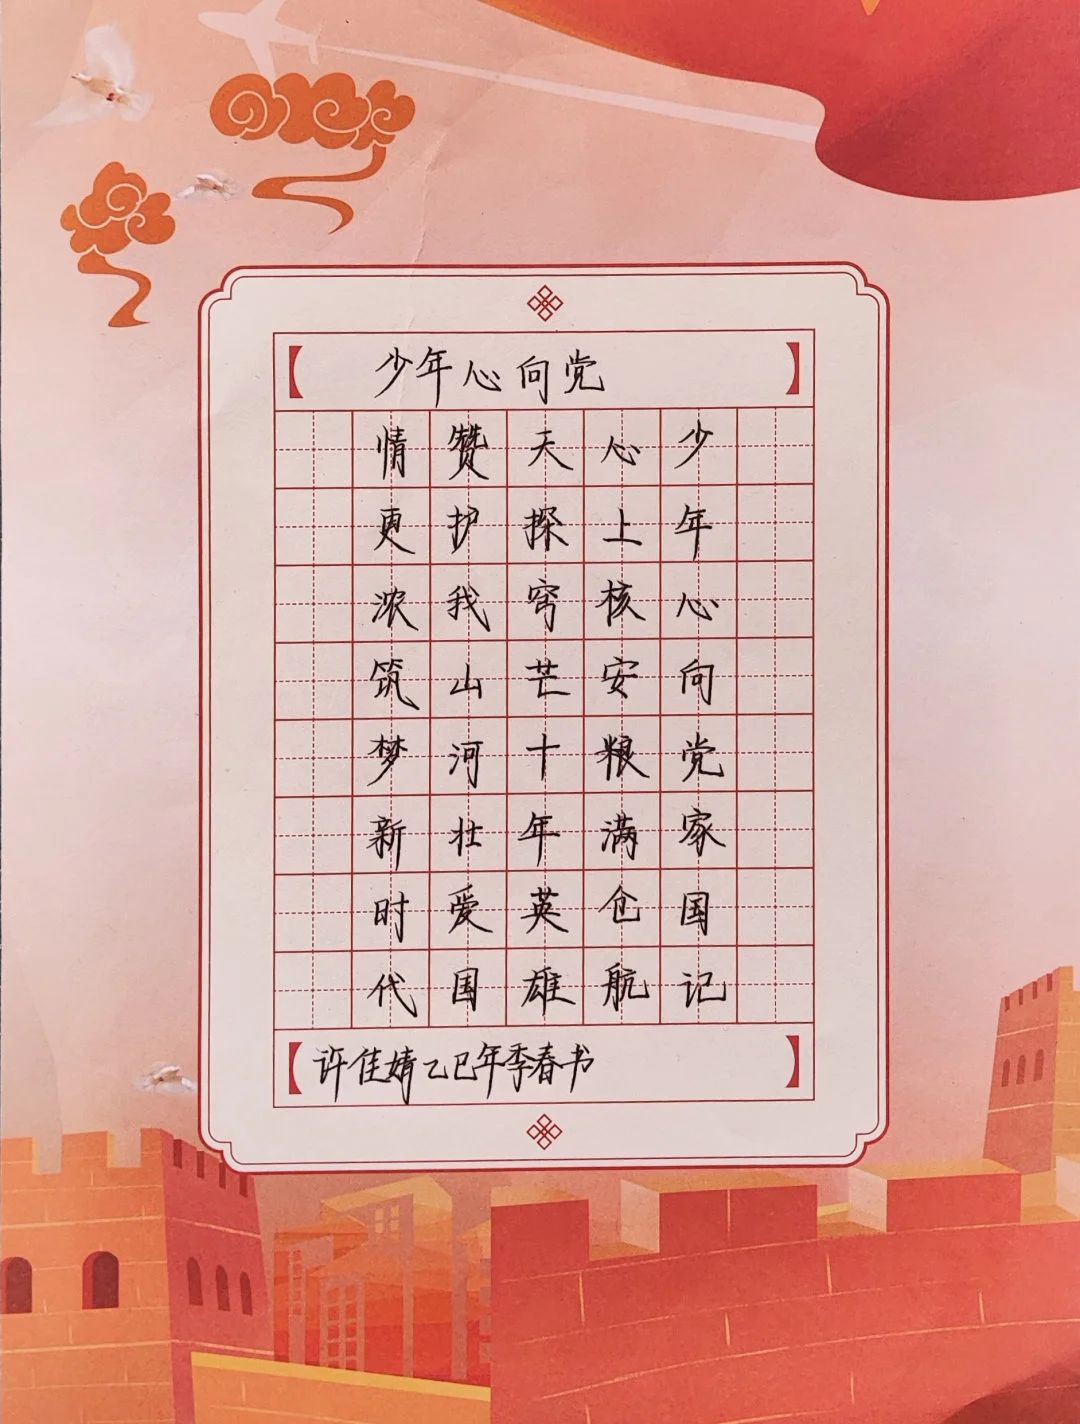 少年心向党
少年心向党家国记
心上核安粮满仓航
天探穹芒十年英雄
赞护我山河壮爱国
情更浓筑梦新时代
许佳婧乙巳年季春书